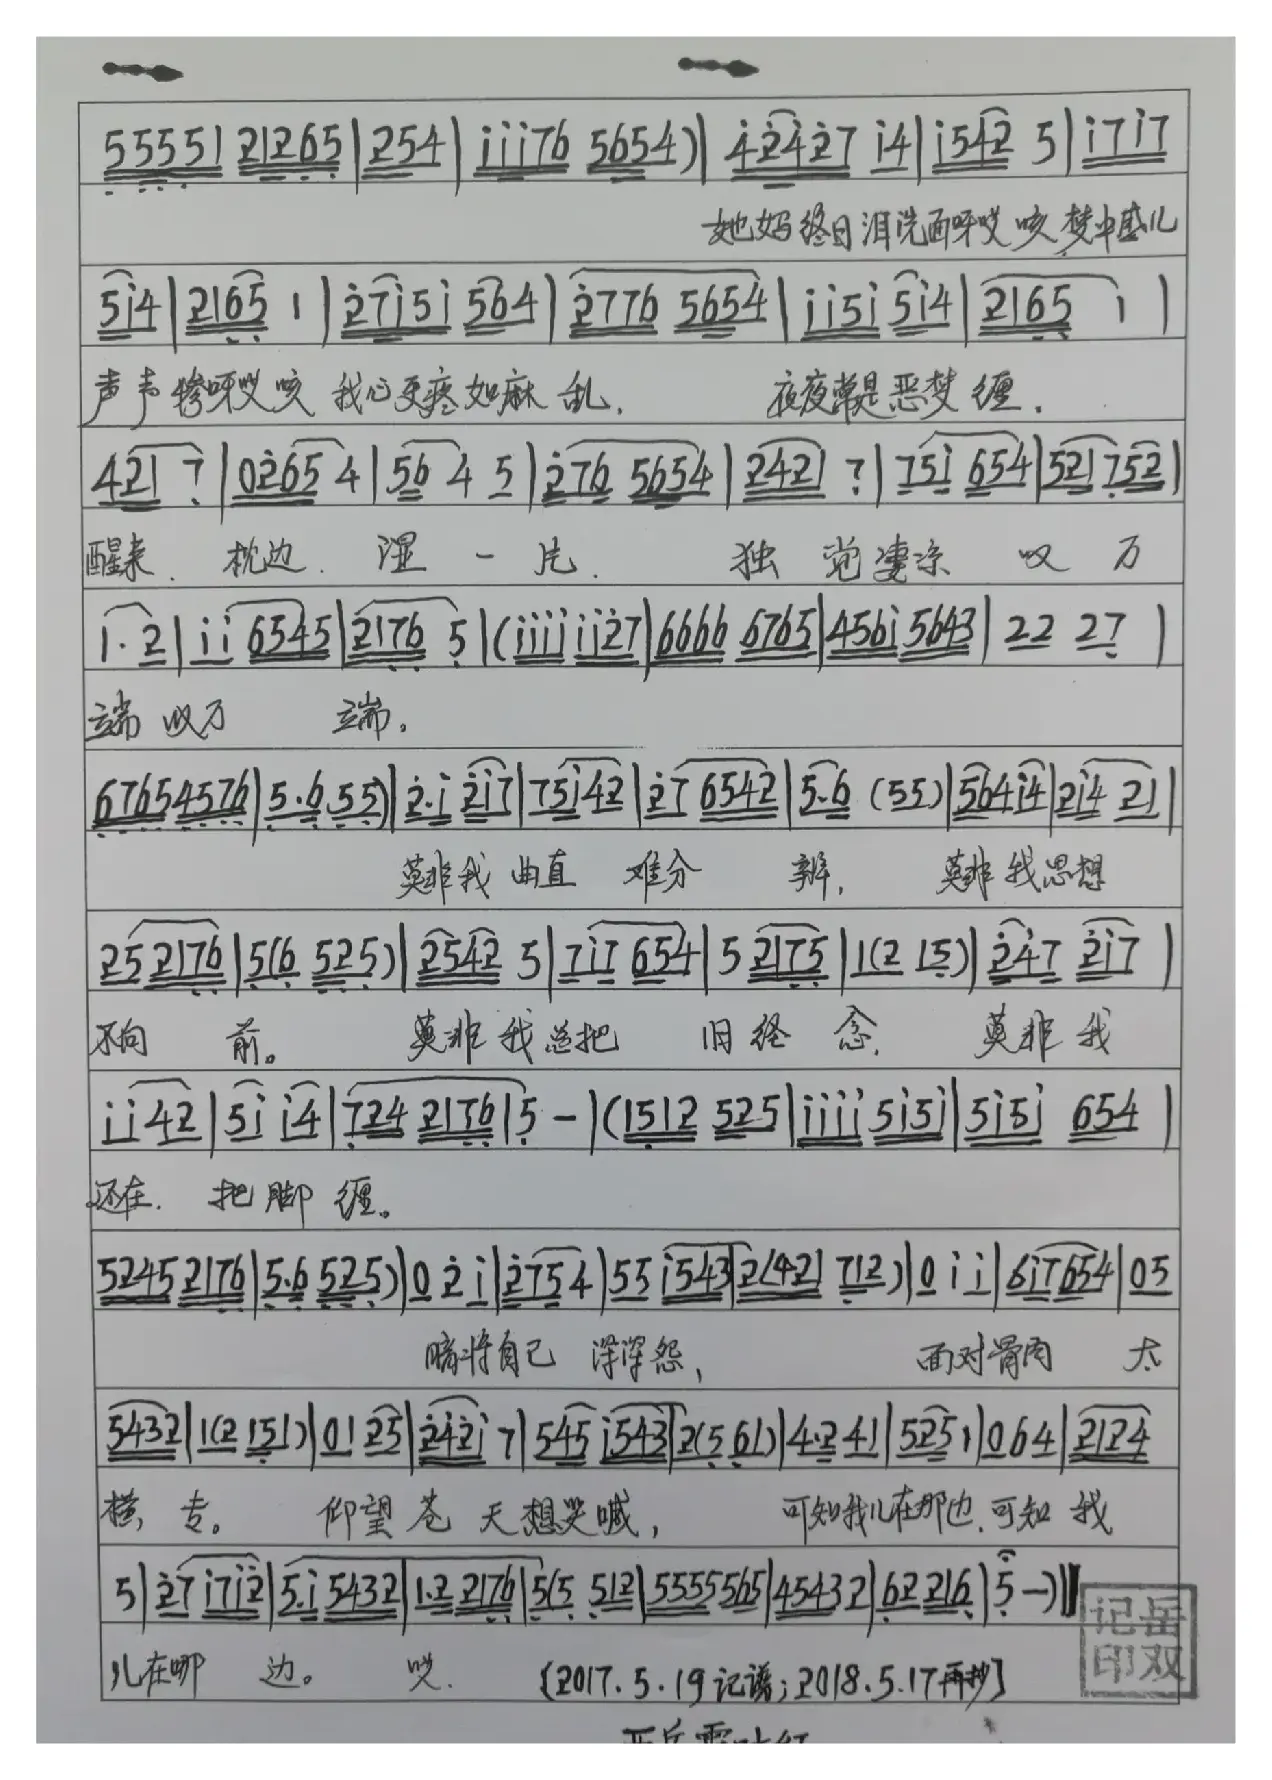 5 5 5 5 1 2 1 2 6 5 | 2 5 4 | i i i 7 6 5 6 5 4 ) | 4 2 4 2 7 i 4 | i 5 4 2 5 | i 7 i 7
她妈终日泪洗面呀哎咳 梦中惑儿
5 i 4 | 2 1 6 5 1 | 2 7 i 5 i 5 6 4 | 2 7 7 6 5 6 5 4 | i i 5 i 5 i 4 | 2 1 6 5 1 |
声声惨呀哎咳 我心更疼如麻乱, 夜夜常是恶梦缠.
4 2 1 7 | 0 2 6 5 4 | 5 6 4 5 | 2 7 6 5 6 5 4 | 2 4 2 1 7 | 7 5 i 6 5 4 | 5 2 1 7 5 2 |
醒来. 枕边. 湿一片. 独觉凄凉 叹万
1 . 2 | i i 6 5 4 5 | 2 1 7 6 5 | ( i i i i i i 2 7 | 6 6 6 6 6 7 6 5 | 4 5 6 i 5 6 4 3 | 2 2 2 7 |
端 叹万 端。
6 7 6 5 4 5 7 6 | 5 . 6 5 5 ) | 2 . i 2 i 7 | 7 5 i 4 2 | 2 7 6 5 4 2 | 5 . 6 ( 5 5 ) | 5 6 4 i 4 | 2 i 4 2 1 |
莫非我 曲直 难分 辨, 莫非我思想
2 5 2 1 7 6 | 5 ( 6 5 2 5 ) | 2 5 4 2 5 | 7 i 7 6 5 4 | 5 2 1 7 5 | 1 ( 2 1 5 ) | 2 4 7 2 i 7 |
不向 前。 莫非我总把 旧经念, 莫非我
i i 4 2 | 5 i i 4 | 7 2 4 2 1 7 6 | 5 - | ( 1 5 1 2 5 2 5 | i i i i 5 i 5 i | 5 i 5 i 6 5 4 |
还在. 把脚缠。
5 2 4 5 2 1 7 6 | 5 . 6 5 2 5 ) | 0 2 i | 2 7 5 4 | 5 5 i 5 4 3 | 2 ( 4 2 1 7 1 2 ) | 0 i i | 6 i 7 6 5 4 | 0 5
暗将自己 深深怨, 面对骨肉 太
5 4 3 2 | 1 ( 2 1 5 1 ) | 0 1 2 5 | 2 4 2 i 7 | 5 4 5 i 5 4 3 | 2 ( 5 6 1 ) | 4 . 2 4 1 | 5 2 5 1 | 0 6 4 | 2 1 2 4
横, 专。 仰望苍天想哭喊, 可知我儿在那边, 可知 我
5 | 2 7 i 7 i 2 | 5 . i 5 4 3 2 | 1 . 2 2 1 7 6 | 5 ( 5 5 1 2 | 5 5 5 5 5 6 5 | 4 5 4 3 2 | 6 2 2 1 6 | 5 - ) ‖
儿在哪 边。 哎. 〔2017.5.19记谱;2018.5.17再抄〕
记岳
印双